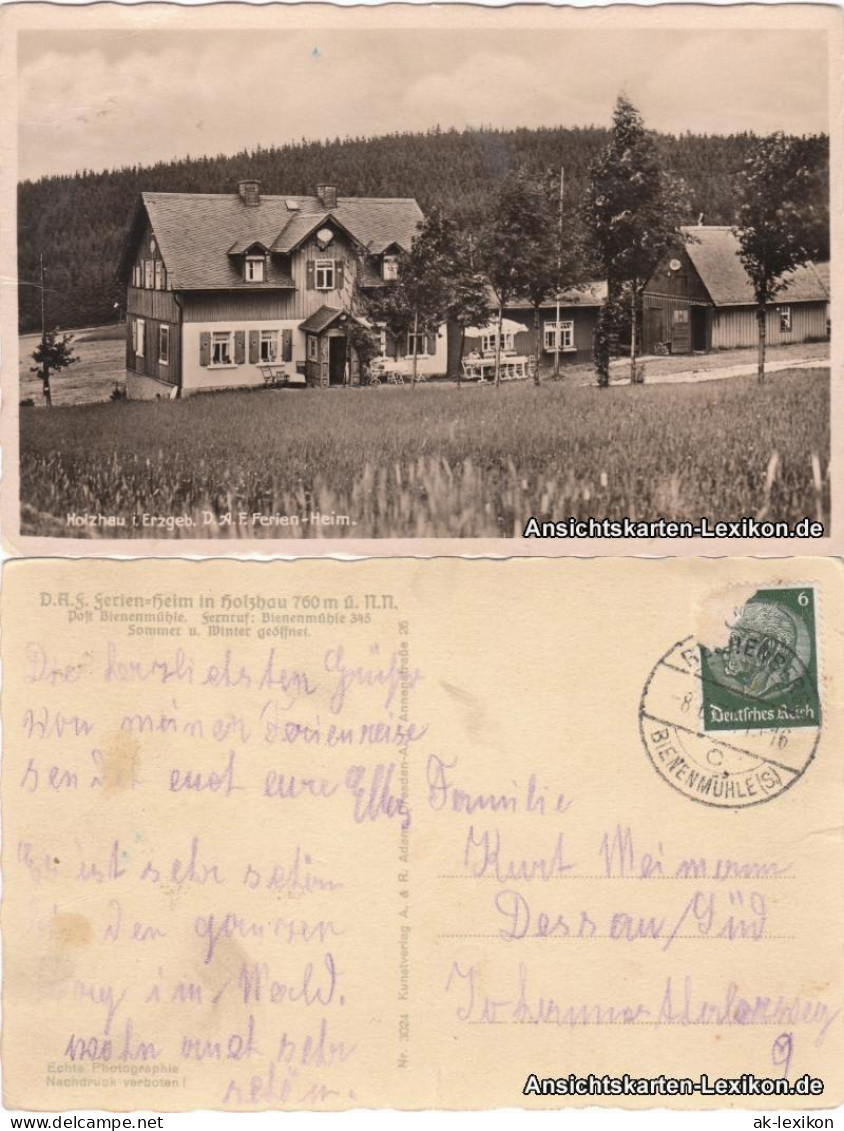 Holzhau i. Erzgeb. D.A.F. Ferien-Heim.
Ansichtskarten-Lexikon.de
D.A.F. Ferien-Heim in Holzhau 760 m ü. N.N.
Post Bienenmühle. Fernruf: Bienenmühle 345
Sommer u. Winter geöffnet.
Die herzlichsten Grüße
von meiner Ferienreise
sendet euch eure Elly
Es ist sehr schön
den ganzen
im Wald.
wohn auch sehr
schön.
Echte Photographie
Nachdruck verboten!
Nr. 3024 Kunstverlag A. & R. Adam, Dresden-A., Annenstraße 26
6
Deutsches Reich
BIENENMÜHLE(S)
c
Familie
Kurt Weimann
Dessau/Süd
9
Ansichtskarten-Lexikon.de
ak-lexikon